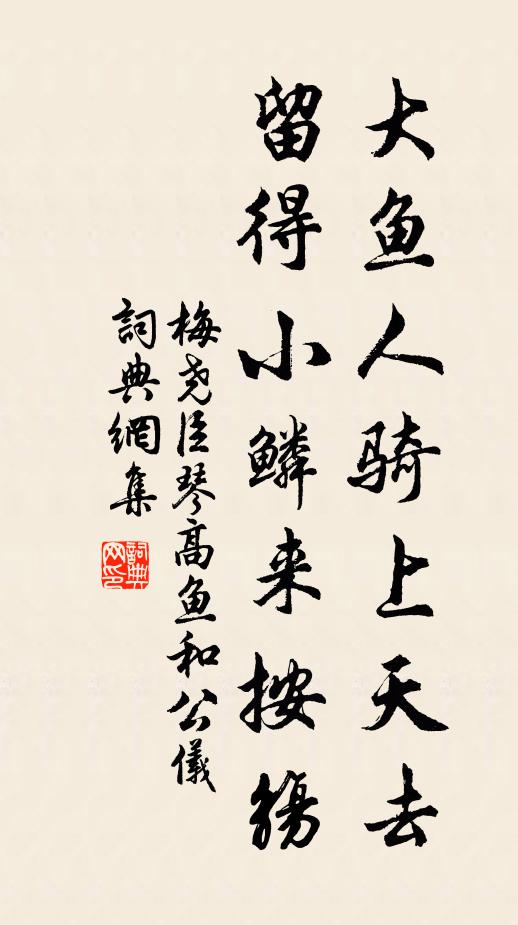 大鱼人骑上天去
留得小鳞来按觞
梅尧臣琴高鱼和公儀
詞典網集
詞典網印